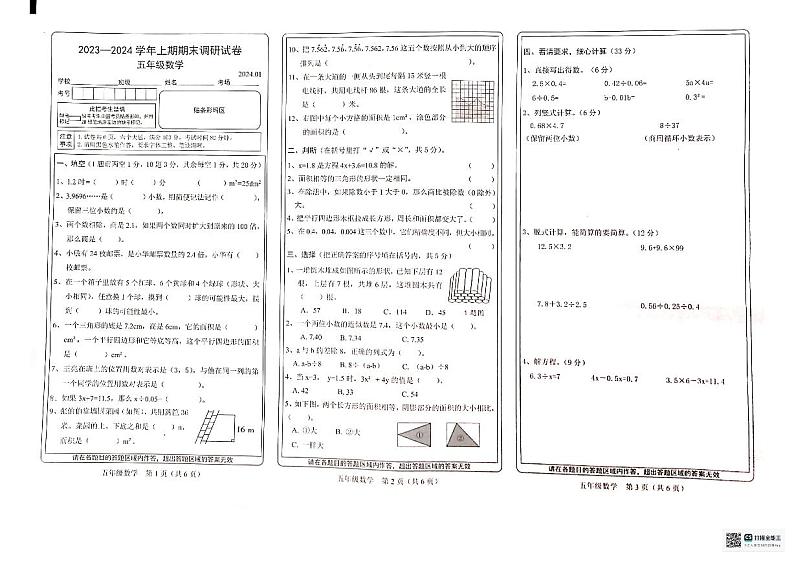 2023—2024学年上期期末调研试卷
五年级数学
2024.01
学校 班级 姓名 考场
考号
此栏考生禁填
贴条形码区
注意事项
1.试卷共6页，六个大题，满分100分，考试时间80分钟。
一、填空（1题前两空1分，10题3分，其余每空1分，共20分）
1、1.2时=（ ）时（ ）分 （ ）m²=25dm²
2、3.9696……是（ ）小数，用简便记法记作（ ），
保留三位小数约是（ ）。
3、两个数相除，商是2.1，如果两个数同时扩大到原来的100倍，
那么商是（ ）。
4、小敏有24枚邮票，是小华邮票数量的2.4倍，小华有（ ）
枚邮票。
5、在一个箱子里放有5个红球、6个黄球和4个绿球（形状、大
小相同），任意摸1个球，摸到（ ）球的可能性最大，摸
到（ ）球的可能性最小。
6、一个三角形的底是7.2cm，高是6cm，它的面积是（ ）
cm²，一个平行四边形和它等底等高，这个平行四边形的面积
是（ ）cm²。
7、王亮在班上的位置用数对表示是（3，5），与他在同一列的第
一个同学的位置用数对表示是（ ）。
8、如果3x+7=11.5，那么x÷0.05=（ ）。
9、把的馅靠墙围菜园（如图），共用篱笆36
米。菜园的上、下底之和是（ ）m，
面积是（ ）m²。
16 m
请在各题目的答题区域内作答，超出答题区域的答案无效
五年级数学 第1页（共6页）
10、把7.562，7.56，7.56，7.562，7.56这五个数按照从小到大的顺序
排列是（ ）。
11、在一条大道的一侧从头到尾每隔15米竖一根
电线杆，共用电线杆86根，这条大道的全长
是（ ）米。
12、右图中每个小方格的面积是1cm²，涂色部分
的面积约是（ ）。
二、判断（在括号里打“√”或“×”，共5分）。
1、x=1.8是方程4x+3.6=10.8的解。 （ ）
2、面积相等的三角形的形状一定相同。 （ ）
3、在除法中，如果除数小于1大于0，那么商比被除数（0除外）
大。 （ ）
4、把平行四边形木框拉成长方形，周长和面积都变大了。（ ）
5、在0.4，0.04，0.004这三个数中，它们精确度不同，但大小相同。
（ ）
三、选择（把正确答案的序号填在括号内，共5分）
1、一堆圆木堆成如图所示的形状，已知下层有12
根，上层有7根，共堆6层，这堆圆木共有
（ ）根。
A、57 B、18 C、114 D、45 1题图
2、一个两位小数的近似数是7.4，这个小数最小是（ ）。
A. 7.40 B. 7.34 C. 7.35
3、a与b的差除8，正确的列式为（ ）。
A. a-b÷8 B. 8÷（a-b） C.（a-b）÷8
4、当x=3，y=1.5时，3x²+4y的值是（ ）。
A. 42 B. 33 C. 54
5、如下图，两个长方形的面积相等，阴影部分的面积的大小相比，
（ ）。
A. ①大 B. ②大
C. 一样大
请在各题目的答题区域内作答，超出答题区域的答案无效
五年级数学 第2页（共6页）
四、看清要求，细心计算（33分）
1、直接写出得数。（6分）
2.5×0.4= 0.42÷0.06= 5a×4a=
6÷0.5= b-0.01b= 0.3²=
2、列竖式计算。（6分）
0.68×4.7 8÷37
（保留两位小数） （商用循环小数表示）
3、脱式计算，能简算的要简算。（12分）
12.5×3.2 9.6+9.6×99
7.8+3.2÷2.5 0.56÷0.25÷0.4
4、解方程。（9分）
6.3÷x=7 4x-0.5x=0.7 3.5×6-3x=11.4
请在各题目的答题区域内作答，超出答题区域的答案无效
五年级数学 第3页（共6页）
扫描全能王